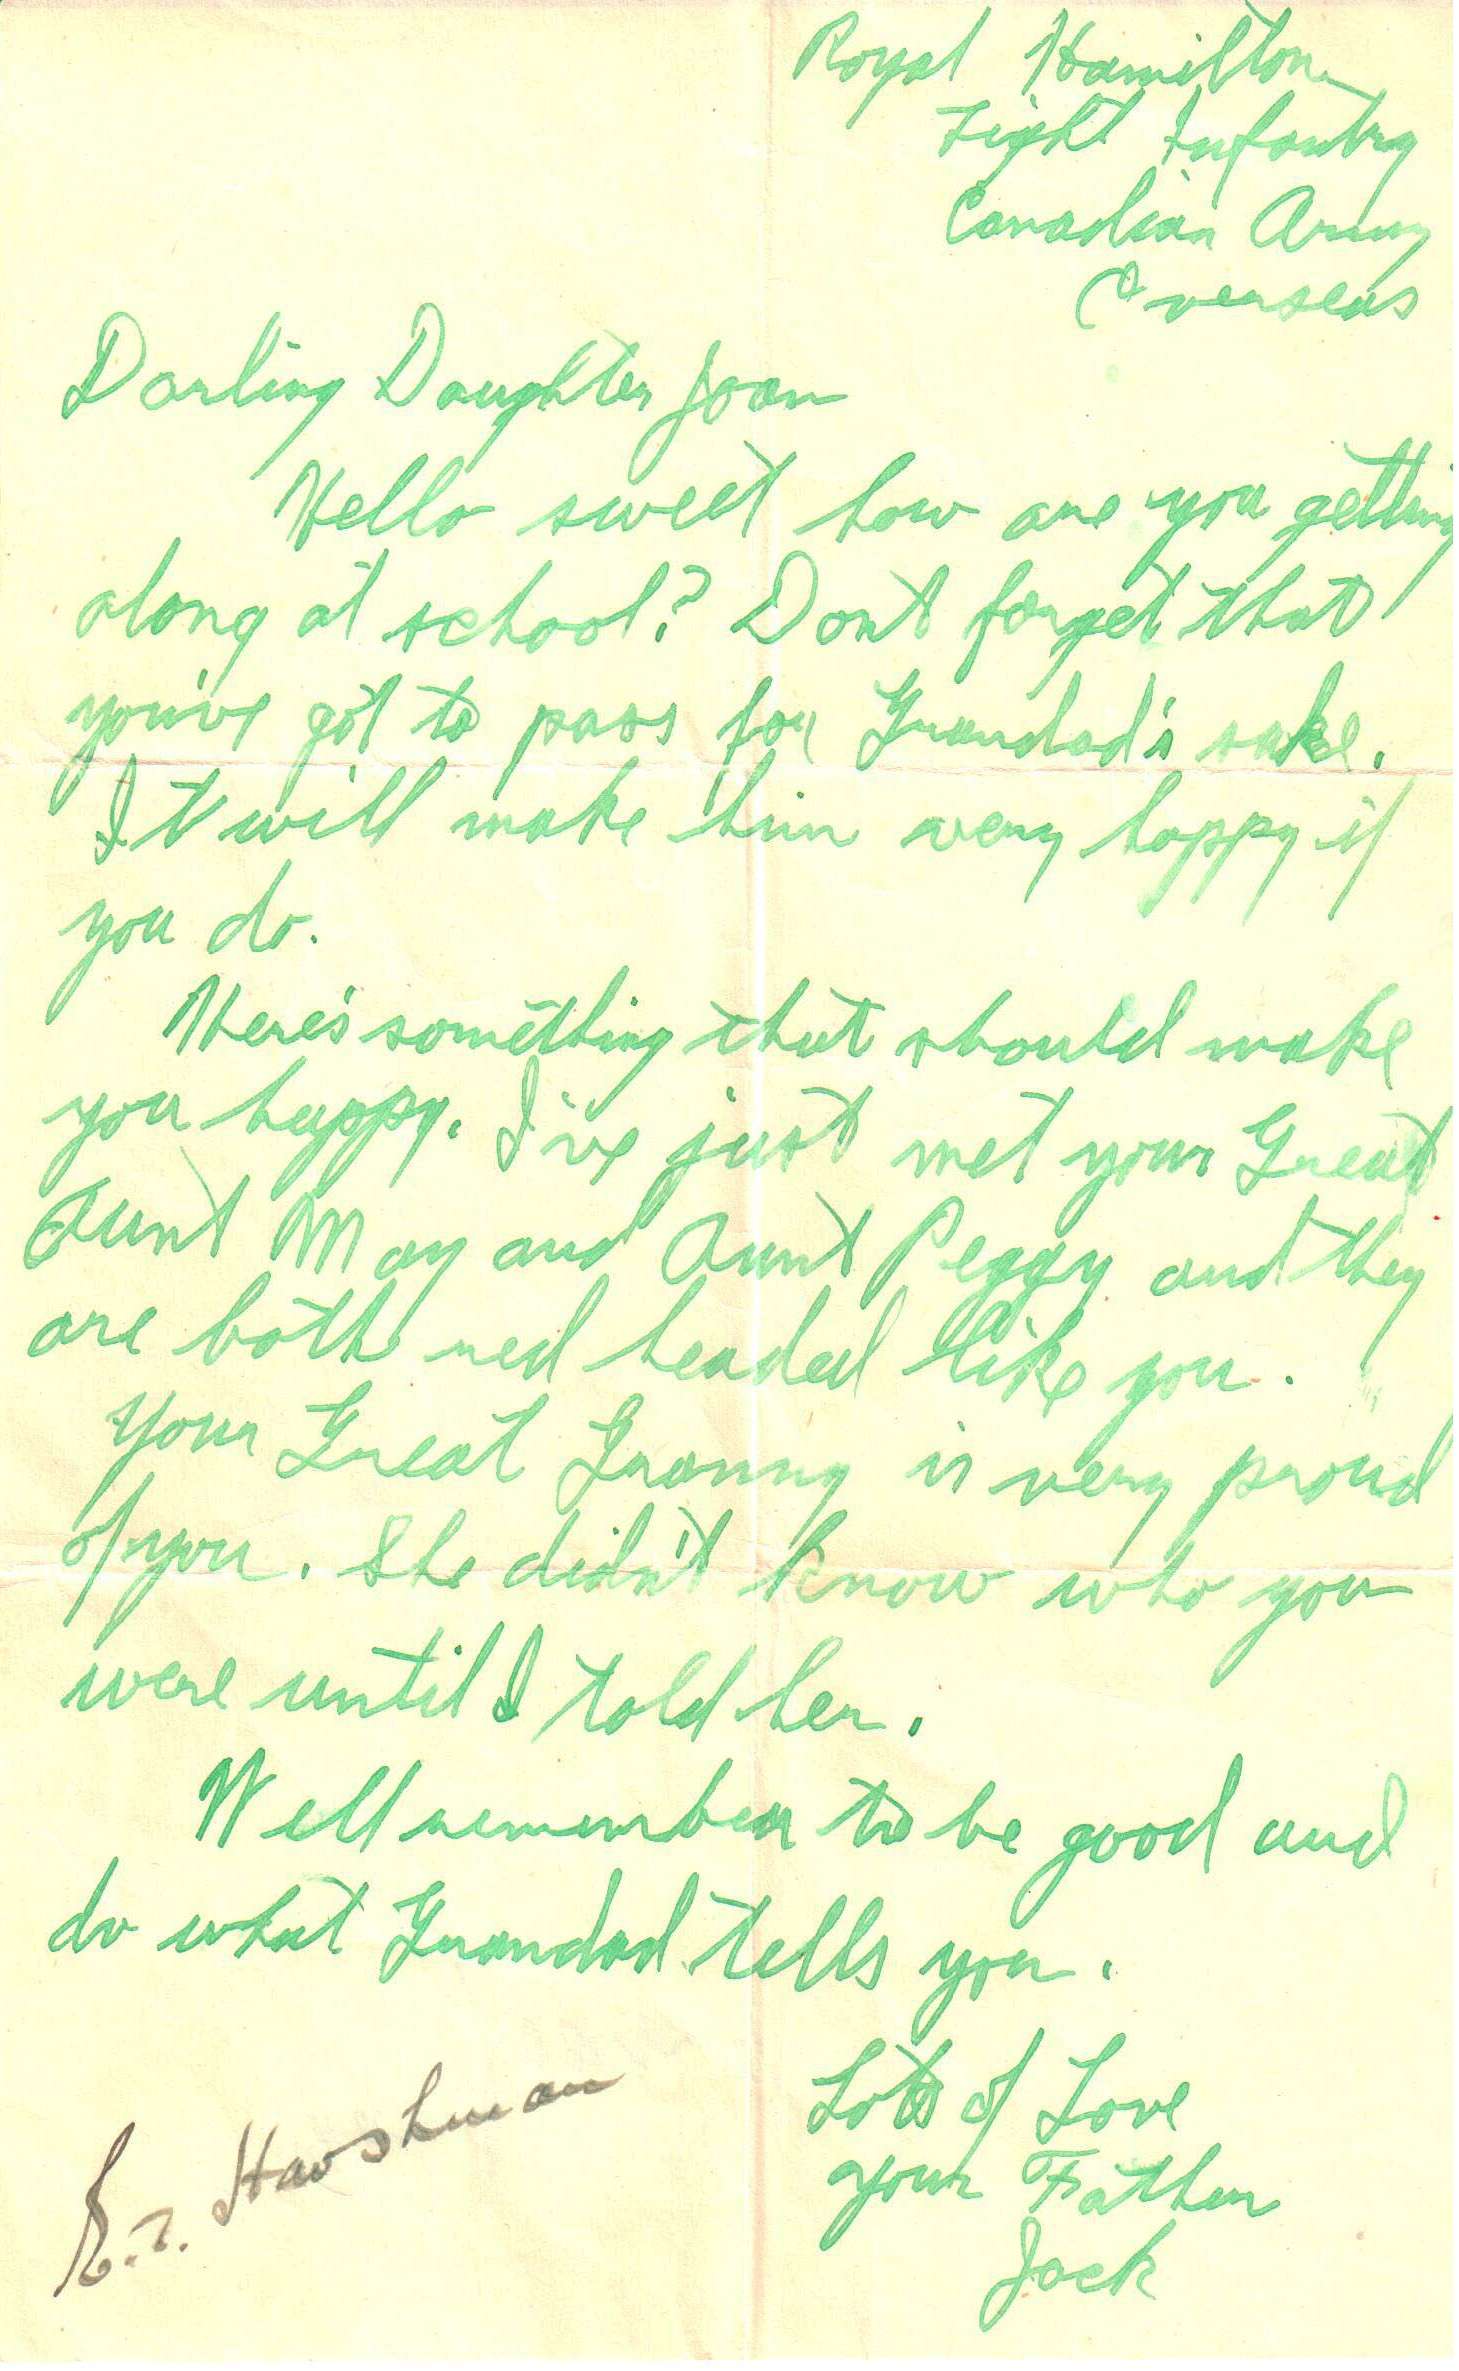 Royal Hamilton
Light Infantry
Canadian Army
Overseas
Darling Daughter Joan
Hello sweet how are you getting
along at school? Dont forget that
you've got to pass for Grandad's sake.
It will make him very happy if
you do.
Here's something that should make
you happy. I've just met your Great
Aunt May and Aunt Peggy and they
are both red headed like you.
Your Great Granny is very proud
of you. She didn't know who you
were until I told her.
Well remember to be good and
do what Grandad tells you.
Lots of Love
your Father
Jack